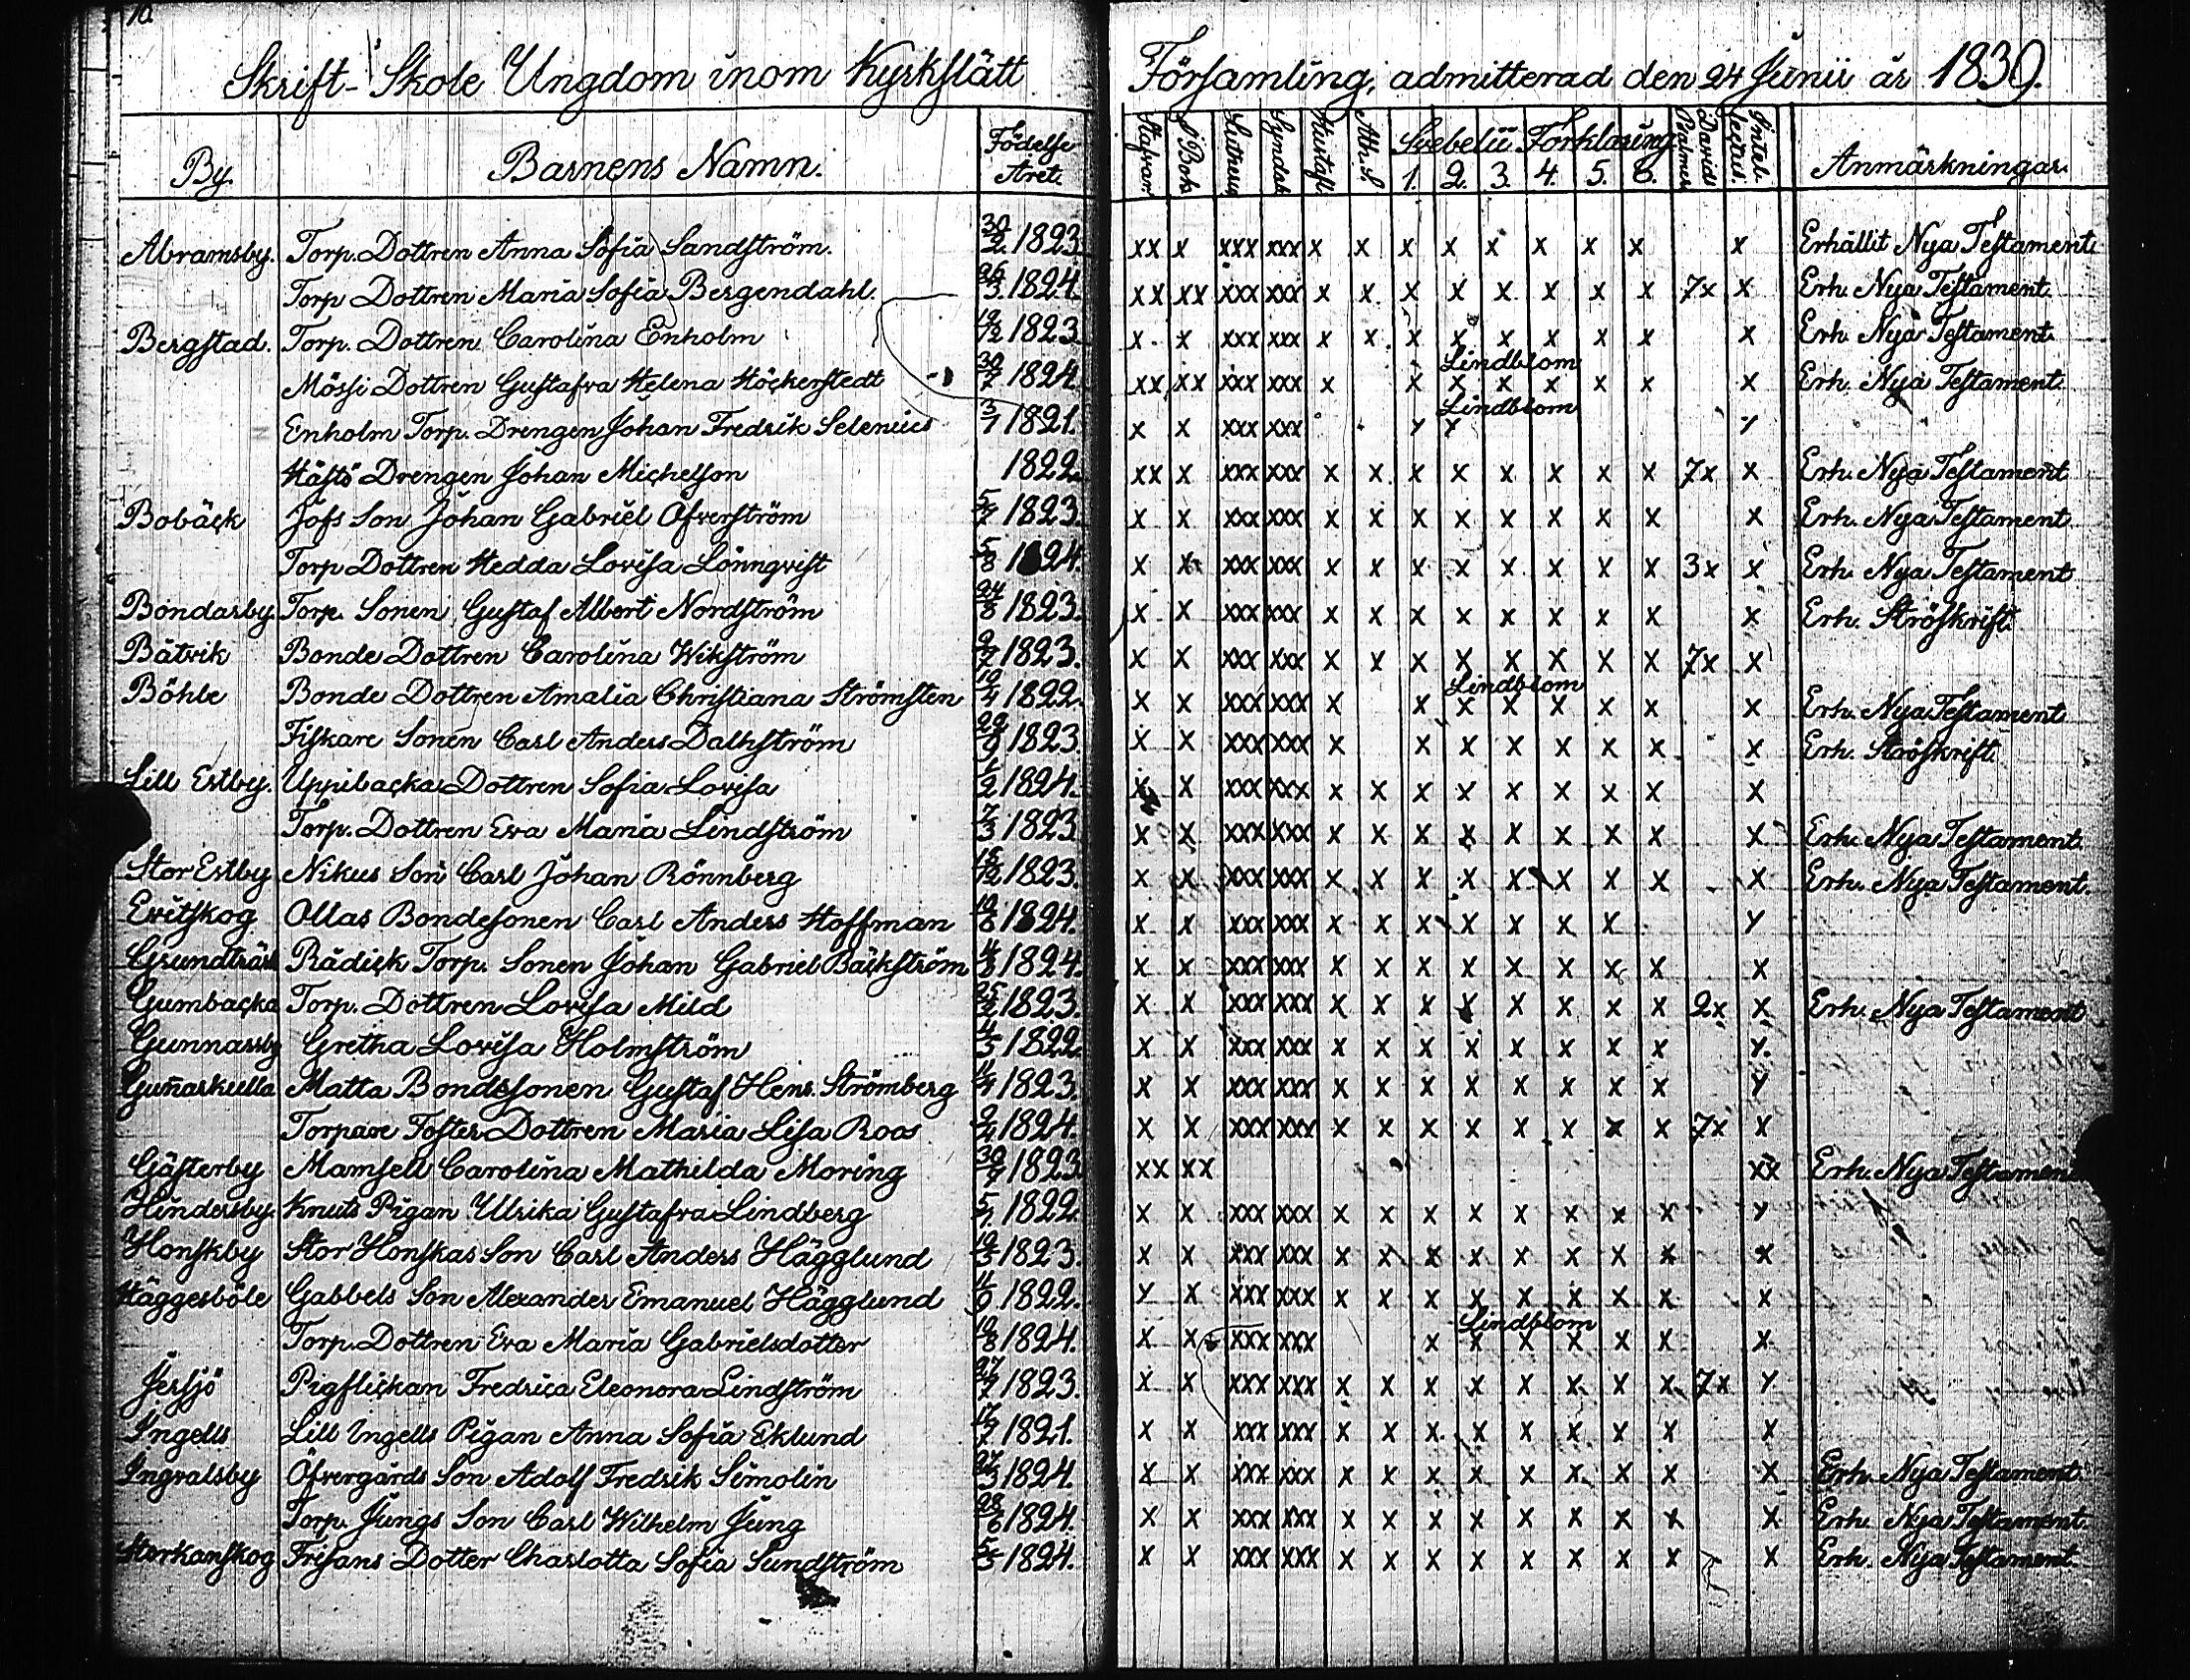 10.
Skrift-Skole Ungdom inom Kyrkslätt Församling, admitterad den 24 Junii år 1839.
By. Barnens Namn. Födelse Året. Stafvar I Bok Lutheus Syndab Hustafl. Ath. S. Svebelii Förklaring 1. 2. 3. 4. 5. 6. Davids Psalmer Intel- lectus. Anmärkningar.
Abramsby. Torp. Dottren Anna Sofia Sandström. 30/2 1823 xx x xxx xxx x x x x x x x x x Erhållit Nya Testament.
Torp Dottren Maria Sofia Bergendahl. 26/3 1824 xx xx xxx xxx x x x x x x x x 7x x Erh. Nya Testament.
Bergstad. Torp. Dottren Carolina Enholm 19/12 1823 x x xxx xxx x x x x x x x x x Erh. Nya Testament.
Lindblom
Mössi Dottren Gustafva Helena Höckerstedt 30/7 1824 xx xx xxx xxx x x x x x x x x Erh. Nya Testament.
Lindblom
Enholm Torp. Drengen Johan Fredrik Selenius 3/7 1821. x x xxx xxx x x x
Häftö Drengen Johan Michelson 1822. xx x xxx xxx x x x x x x x x 7x x Erh. Nya Testament
Bobäck Jofs Son Johan Gabriel Öfverström 5/7 1823. x x xxx xxx x x x x x x x x x Erh. Nya Testament
Torp Dottren Hedda Lovisa Lönnqvist 5/8 1824. x x xxx xxx x x x x x x x x 3x x Erh. Nya Testament
Bondarby Torp. Sonen Gustaf Albert Nordström 24/8 1823. x x xxx xxx x x x x x x x x x Erh. Ströskrift.
Båtvik Bonde Dottren Carolina Wikström 9/7 1823. x x xxx xxx x x x x x x x x 7x x
Lindblom
Böhle Bonde Dottren Amalia Christiana Strömsten 19/4 1822. x x xxx xxx x x x x x x x x Erh. Nya Testament
Fiskare Sonen Carl Anders Dalhström 29/9 1823. x x xxx xxx x x x x x x x x Erh. Ströskrift.
Lill Estby. Uppibacka Dottren Sofia Lovisa 1/2 1824. x x xxx xxx x x x x x x x x x
Torp. Dottren Eva Maria Lindström 7/3 1823 x x xxx xxx x x x x x x x x x Erh. Nya Testament.
Stor Estby Nikus Son Carl Johan Rönnberg 15/12 1823. x x xxx xxx x x x x x x x x x Erh. Nya Testament.
Evitskog Ollas Bondesonen Carl Anders Hoffman 19/8 1824. x x xxx xxx x x x x x x x x
Grundträsk Rädick Torp. Sonen Johan Gabriel Bäckström 4/8 1824. x x xxx xxx x x x x x x x x x
Gumbacka Torp. Dottren Lovisa Mild 25/2 1823. x x xxx xxx x x x x x x x x 2x x Erh. Nya Testament
Gunnarsby Gretha Lovisa Holmström 4/5 1822. x x xxx xxx x x x x x x x x x
Gun̄arskulla Matta Bondesonen Gustaf Henr. Strömberg 11/4 1823. x x xxx xxx x x x x x x x x x
Torpare Foster Dottren Maria Lisa Roos 9/4 1824. x x xxx xxx x x x x x x x x 7x x
Gästerby Mamsell Carolina Mathilda Moring 30/7 1823 xx xx xx Erh. Nya Testament
Hindersby. Knuts Pigan Ulrika Gustafva Lindberg 5/7 1822. x x xxx xxx x x x x x x x x x
Honskby Stor Honskas Son Carl Anders Hägglund 19/3 1823. x x xxx xxx x x x x x x x x x
Häggesböle Gabbels Son Alexander Emanuel Hägglund 11/9 1822. x x xxx xxx x x x x x x x x x
Lindblom
Torp. Dottren Eva Maria Gabrielsdotter 19/8 1824. x x xxx xxx x x x x x x x
Jersjö Pigflickan Fredrica Eleonora Lindström 27/7 1823. x x xxx xxx x x x x x x x x 7x x
Ingells Lill Ingells Pigan Anna Sofia Eklund 17/7 1821. x x xxx xxx x x x x x x x x x
Ingvalsby Öfvergårds Son Adolf Fredrik Simolin 27/3 1824. x x xxx xxx x x x x x x x x x Erh. Nya Testament
Torp. Jungs Son Carl Wilhelm Jung 28/6 1824. x x xxx xxx x x x x x x x x x Erh. Nya Testament.
Storkanskog Frisans Dotter Charlotta Sofia Sundström 5/3 1824. x x xxx xxx x x x x x x x x x Erh. Nya Testament.